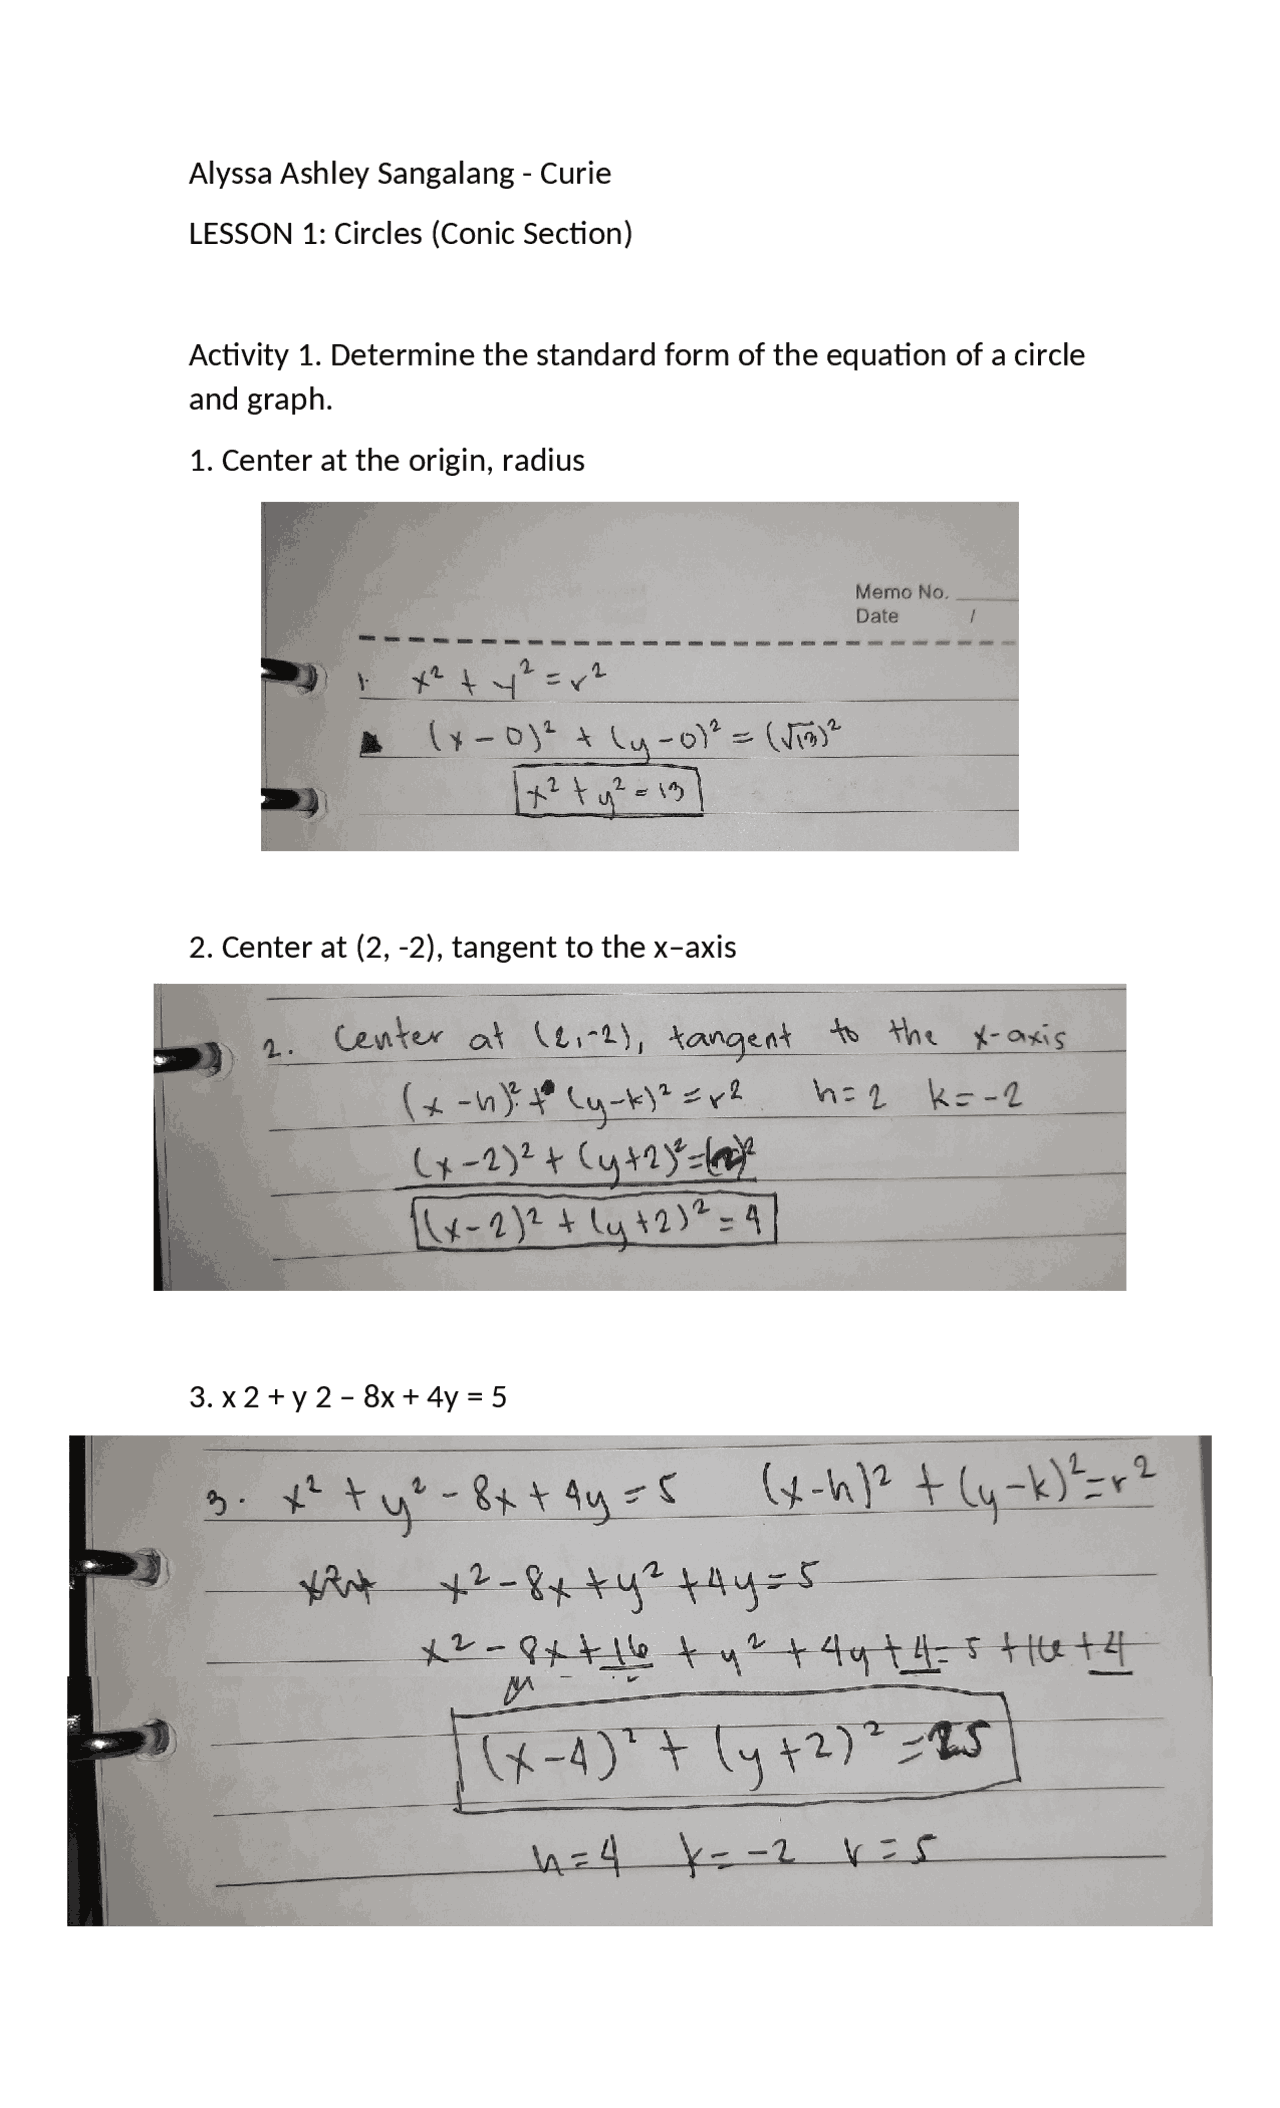 Alyssa Ashley Sangalang - Curie
LESSON 1: Circles (Conic Section)
Activity 1. Determine the standard form of the equation of a circle
and graph.
1. Center at the origin, radius
Memo No.
Date /
1. x² + y² = r²
(x - 0)² + (y - 0)² = (√13)²
x² + y² = 13
2. Center at (2, -2), tangent to the x–axis
2. Center at (2, -2), tangent to the x-axis
(x - h)² + (y - k)² = r² h = 2 k = -2
(x - 2)² + (y + 2)² = (2)²
(x - 2)² + (y + 2)² = 4
3. x 2 + y 2 – 8x + 4y = 5
3. x² + y² - 8x + 4y = 5 (x - h)² + (y - k)² = r²
x² - 8x + y² + 4y = 5
x² - 8x + 16 + y² + 4y + 4 = 5 + 16 + 4
(x - 4)² + (y + 2)² = 25
h = 4 k = -2 r = 5